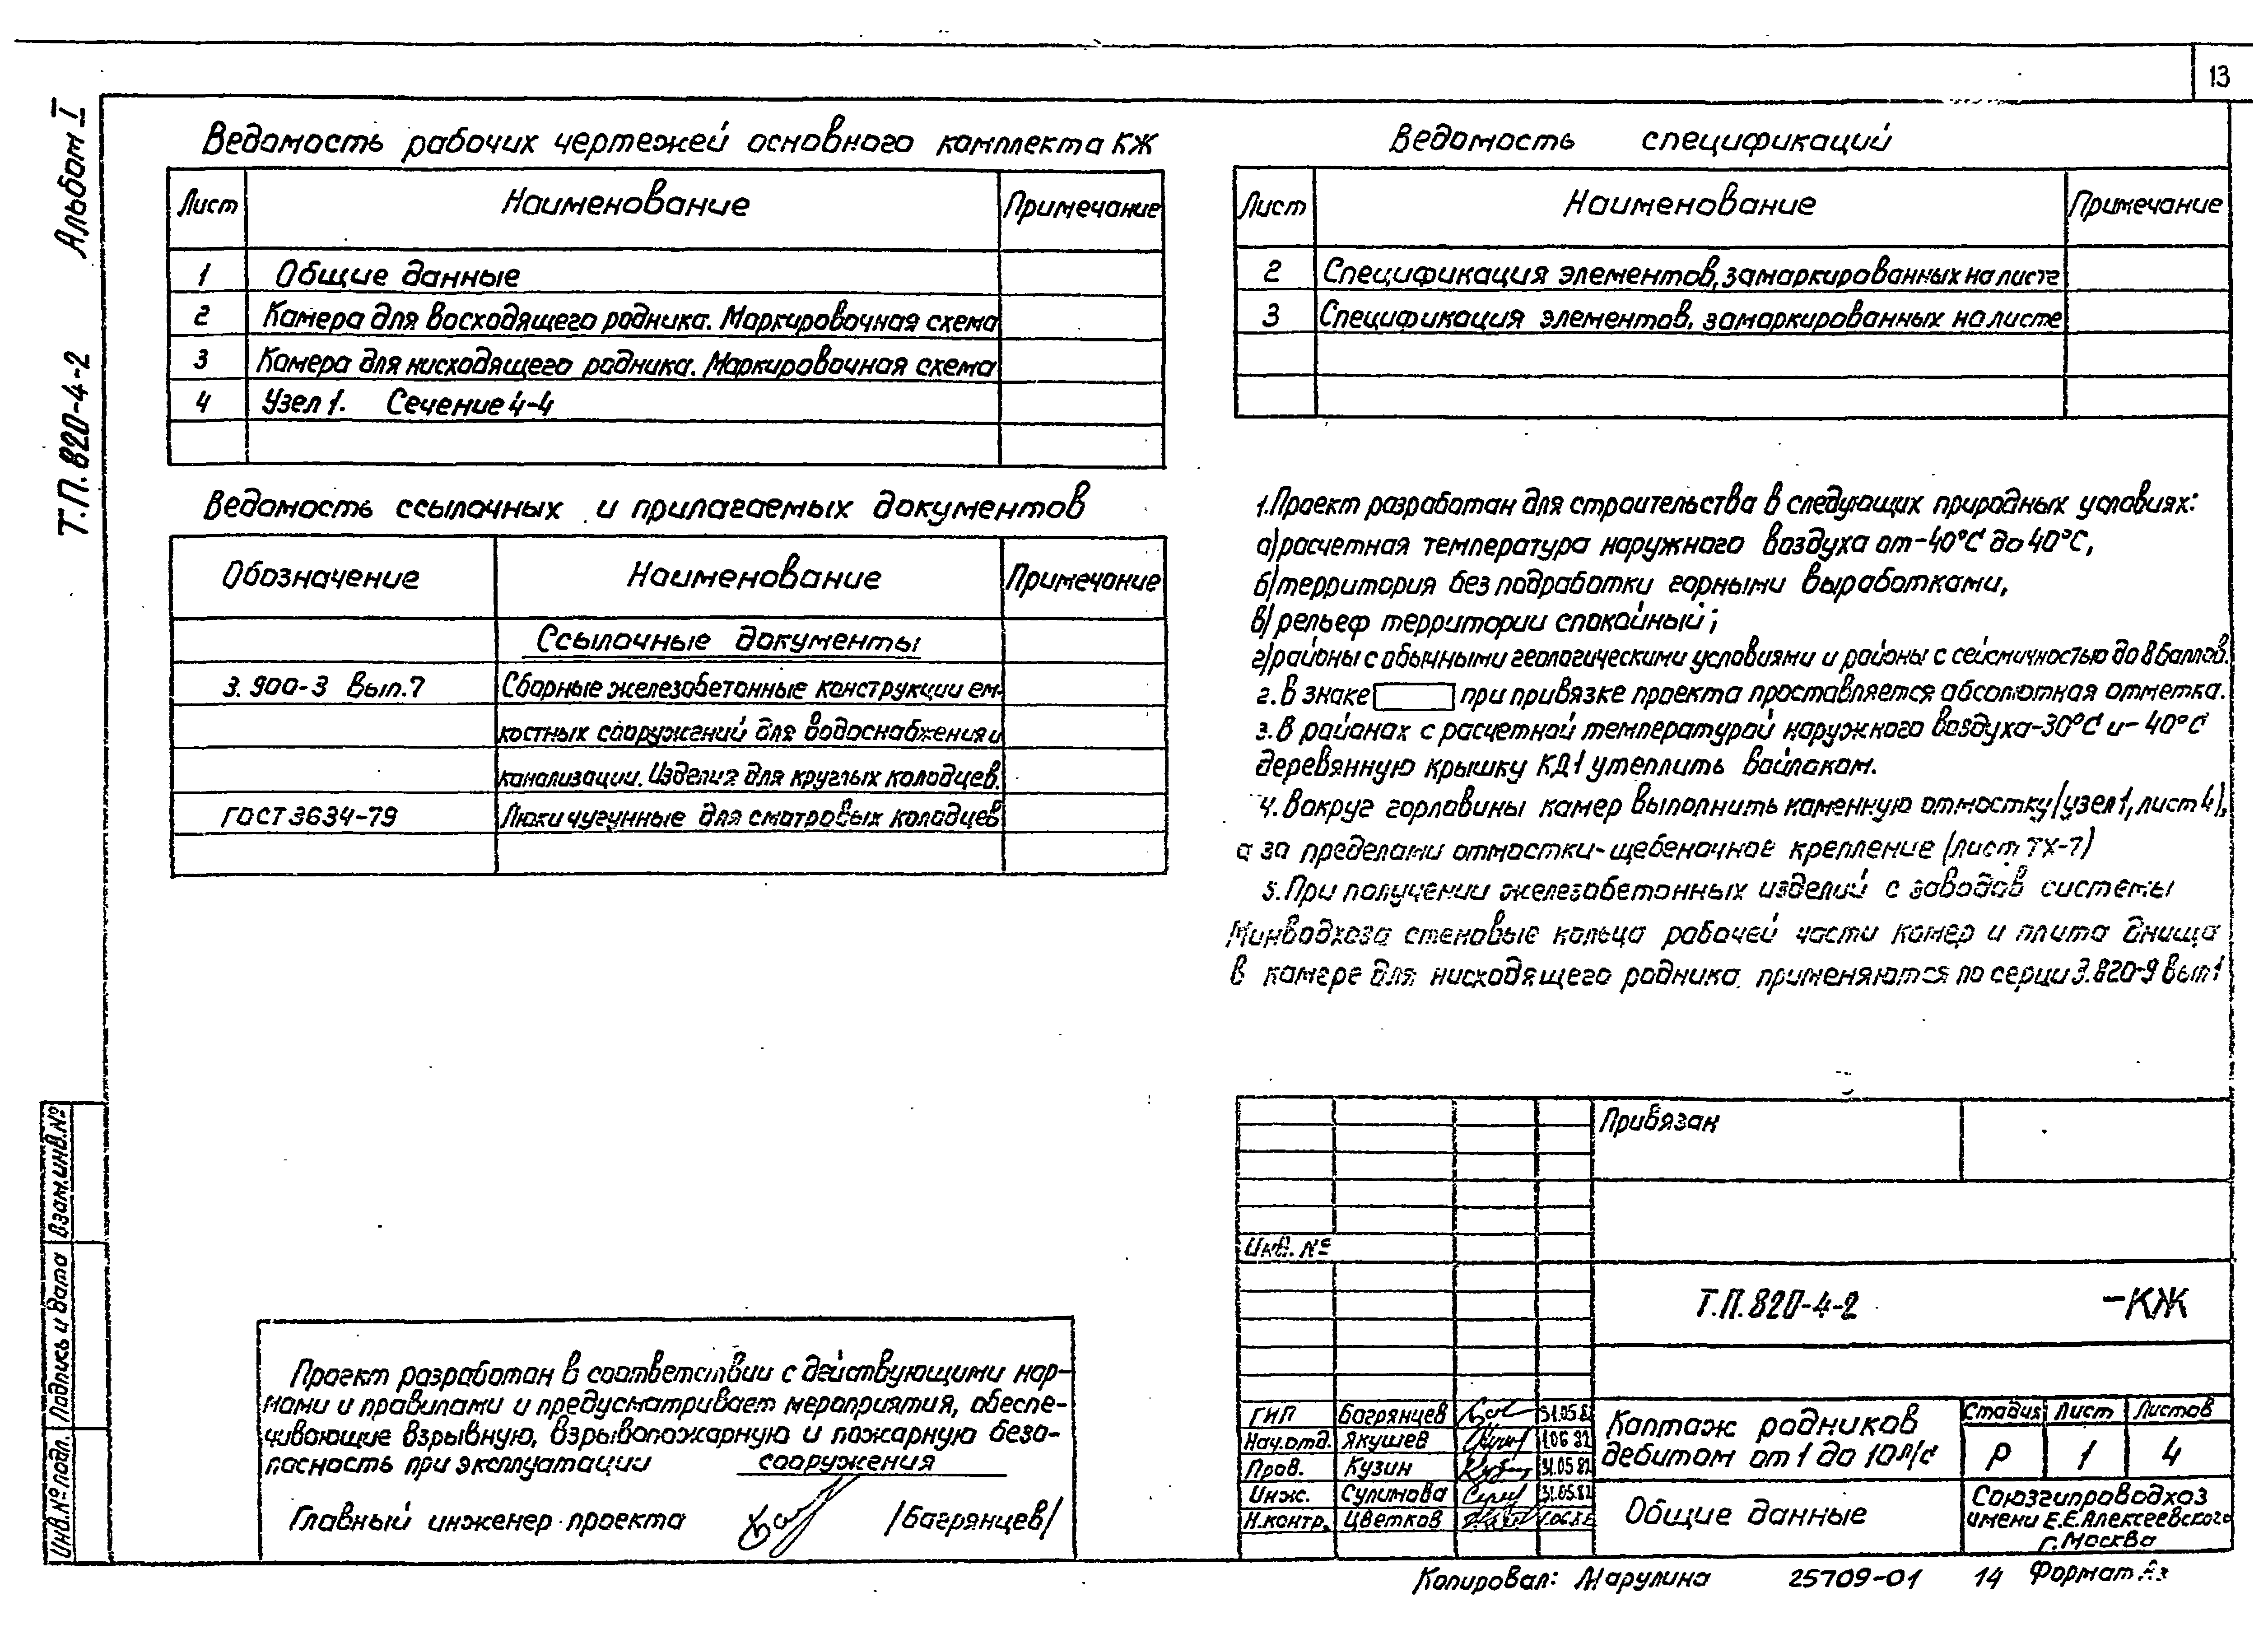 13
Альбом I
Т.П. 820-4-2
Ведомость рабочих чертежей основного комплекта КЖ
Лист Наименование Примечание
1 Общие данные
2 Камера для восходящего родника. Маркировочная схема
3 Камера для нисходящего родника. Маркировочная схема
4 Узел 1. Сечение 4-4
Ведомость ссылочных и прилагаемых документов
Обозначение Наименование Примечание
Ссылочные документы
3.900-3 Вып.7 Сборные железобетонные конструкции ем-
костных сооружений для водоснабжения и
канализации. Изделия для круглых колодцев.
ГОСТ 3634-79 Люки чугунные для смотровых колодцев
Ведомость спецификаций
Лист Наименование Примечание
2 Спецификация элементов, замаркированных на листе
3 Спецификация элементов, замаркированных на листе
1. Проект разработан для строительства в следующих природных условиях:
а) расчетная температура наружного воздуха от -40°С до 40°С,
б) территория без подработки горными выработками,
в) рельеф территории спокойный;
г) районы с обычными геологическими условиями и районы с сейсмичностью до 8 баллов.
2. В знаке при привязке проекта проставляется абсолютная отметка.
3. В районах с расчетной температурой наружного воздуха -30°С и -40°С
деревянную крышку КД1 утеплить войлоком.
4. Вокруг горловины камер выполнить каменную отмостку (узел 1, лист 4),
а за пределами отмостки - щебеночное крепление (лист ТХ-7)
5. При получении железобетонных изделий с заводов системы
Минводхоза стеновые кольца рабочей части камер и плита днища
в камере для нисходящего родника применяются по серии 3.820-9 Вып 1
Взам.инв.№
Подпись и дата
Инв.№ подл.
Проект разработан в соответствии с действующими нор-
мами и правилами и предусматривает мероприятия, обеспе-
чивающие взрывную, взрывопожарную и пожарную безо-
пасность при эксплуатации сооружения
Главный инженер проекта /Багрянцев/
Привязан
Инв. №
Т.П. 820-4-2 -КЖ
ГИП Багрянцев 31.05.82
Нач.отд. Якушев 1.06.82
Пров. Кузин 31.05.82
Инж. Сулимова 31.05.82
Н.контр. Цветков 1.06.82
Каптаж родников
дебитом от 1 до 10 л/с
Стадия Лист Листов
Р 1 4
Общие данные
Союзгипроводхоз
имени Е.Е.Алексеевского
г.Москва
Копировал: Марулина 25709-01 14 Формат А3